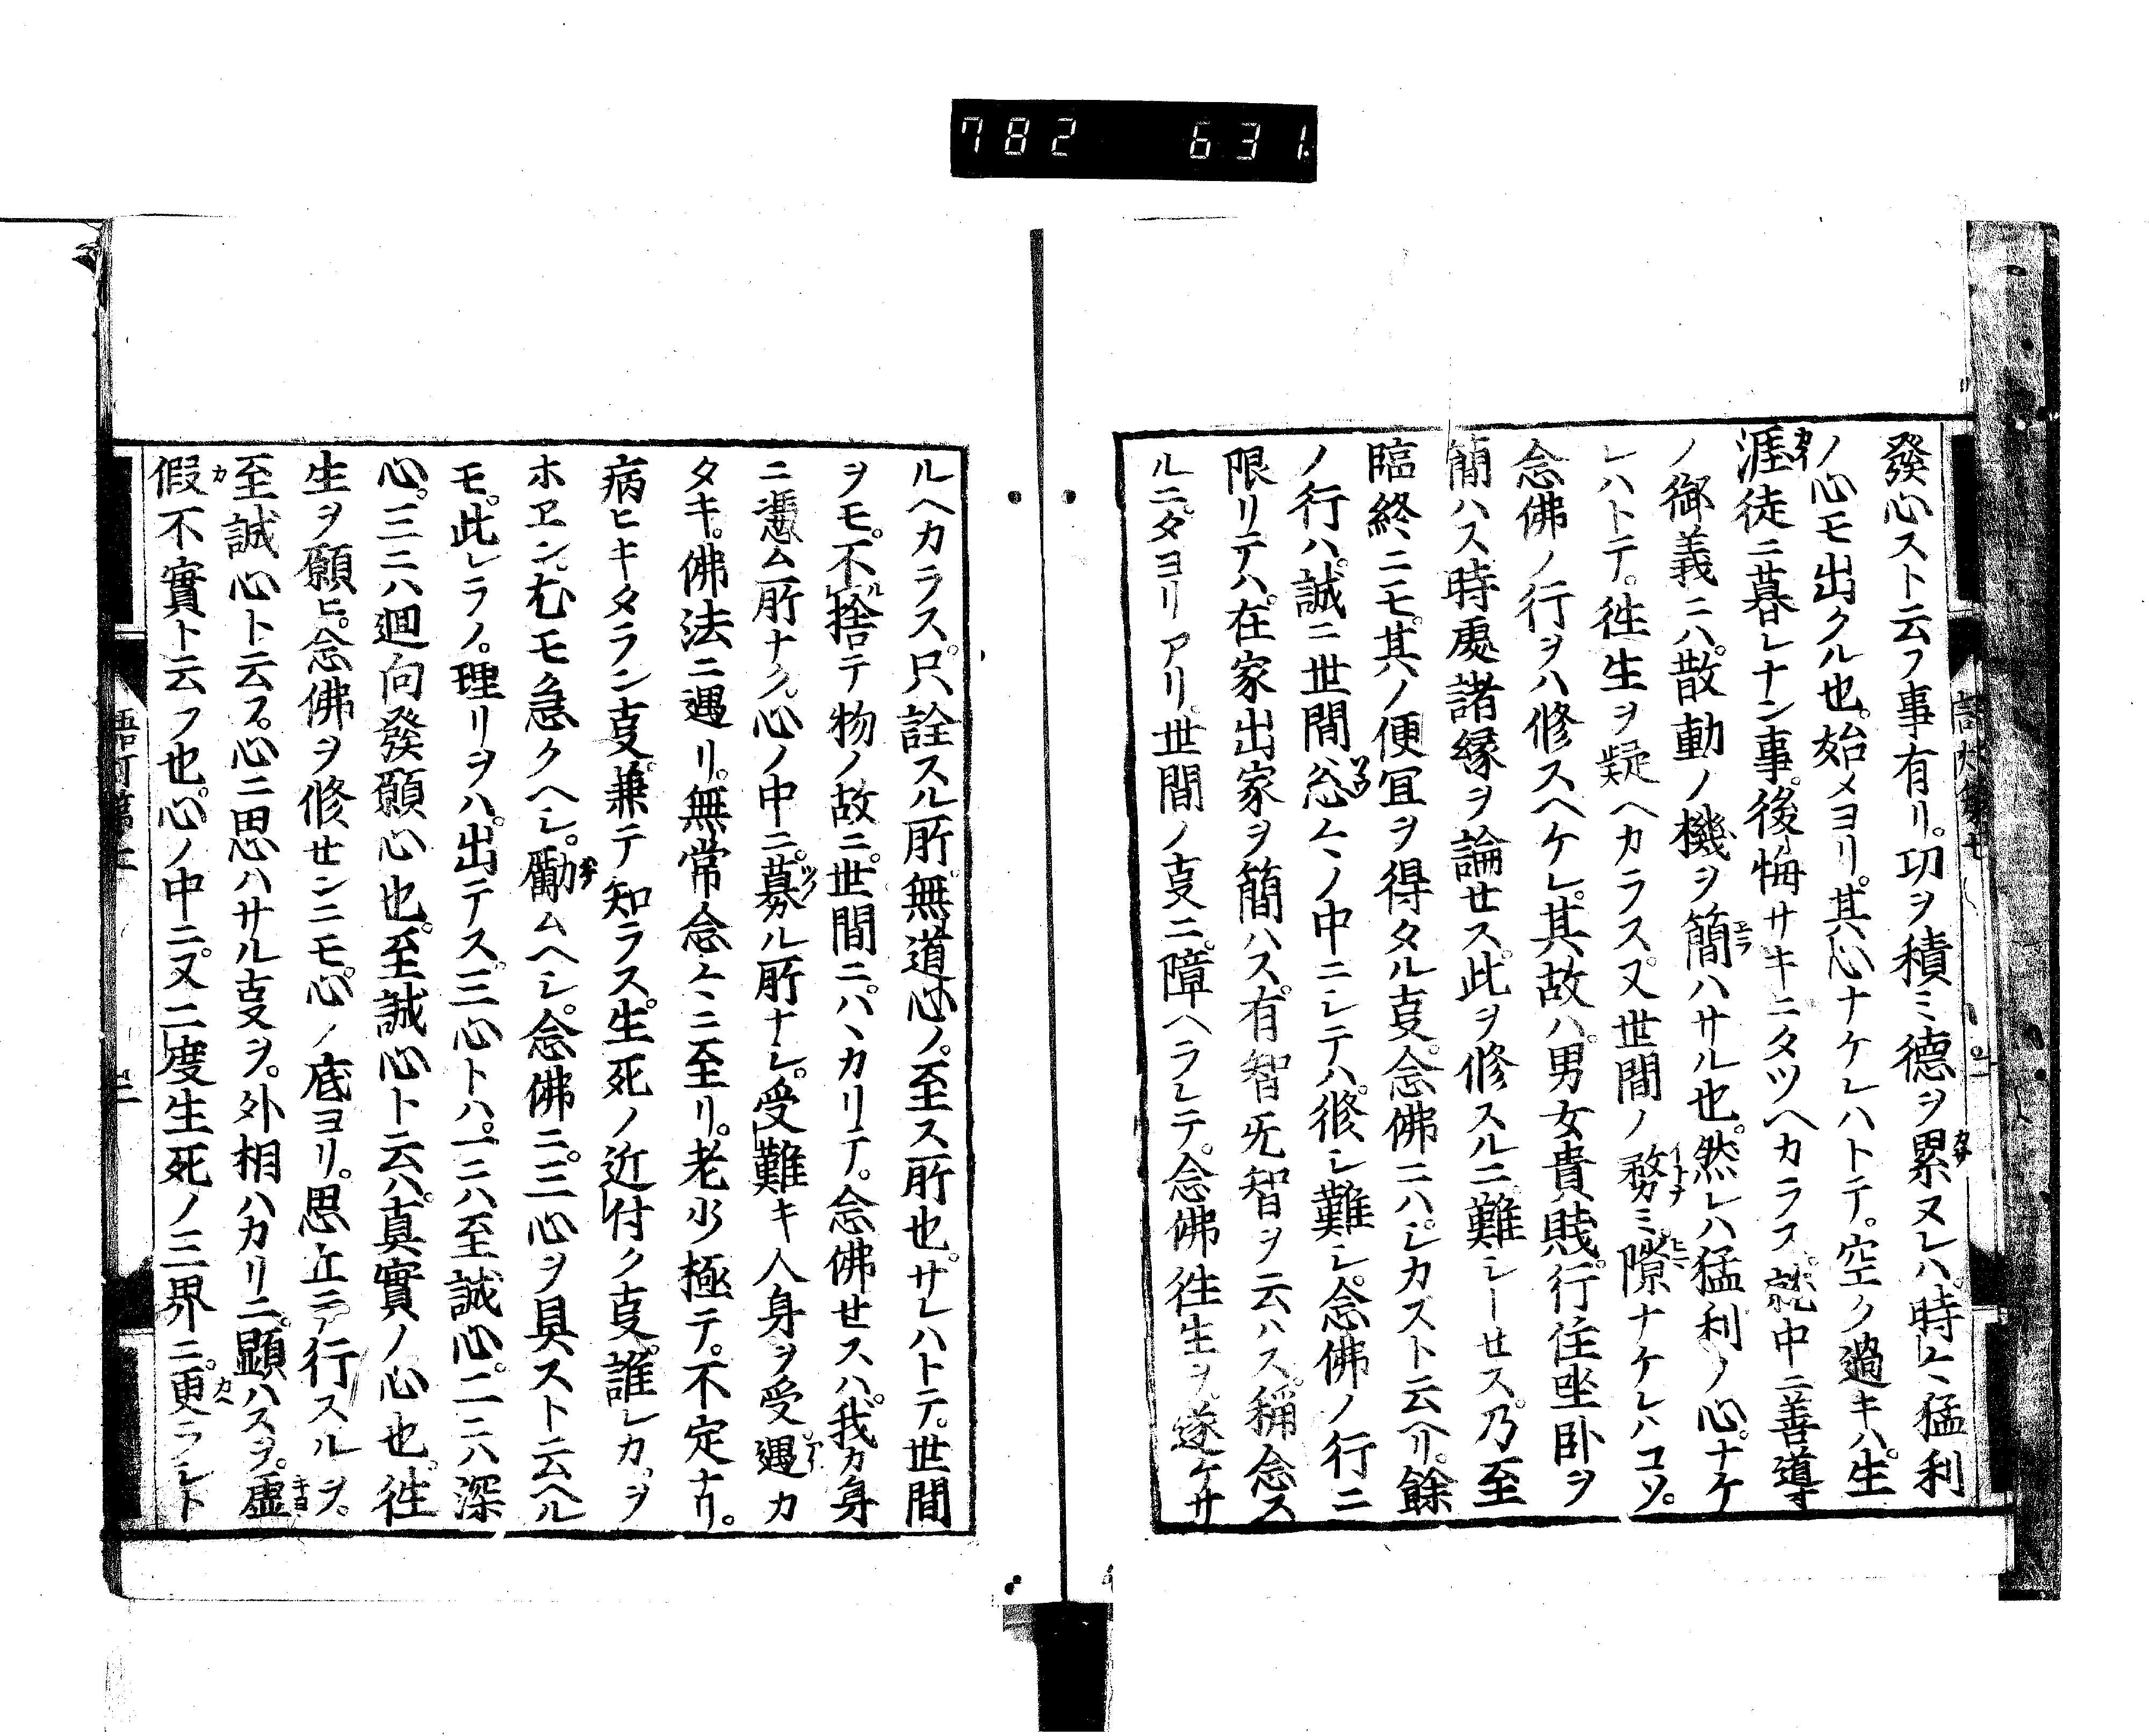 782 631
發心スト云フ事有リ。功ヲ積ミ德ヲ累ヌレハ。時々猛利
ノ心モ出クル也。始メヨリ。其心ナケレハトテ。空ク過キハ。生
涯徒ニ暮レナン事。後悔サキニタツヘカラス。就中ニ善導
ノ御義ニハ。散動ノ機ヲ簡ハサル也。然レハ猛利ノ心。ナケ
レハトテ。徃生ヲ疑ヘカラス。又世間ノ務ミ隙ナケレハコソ。
念佛ノ行ヲハ修スヘケレ。其故ハ。男女貴賤。行住坐卧ヲ
簡ハス時處諸縁ヲ論セス。此ヲ修スルニ難シーセス。乃至
臨終ニモ。其ノ便冝ヲ得タル㕝。念佛ニハシカズト云ヘリ。餘
ノ行ハ。誠ニ世間怱々ノ中ニレテハ。修シ難シ。念佛ノ行ニ
限リテハ。在家出家ヲ簡ハス。有智旡智ヲ云ハス。稱念ス
ルニ。タヨリアリ。世間ノ㕝ニ。障ヘラレテ。念佛徃生ヲ。遂ケサ
ルヘカラス。只詮スル所。無道心ノ。至ス所也。サレハトテ。世間
ヲモ。不捨テ物ノ故ニ。世間ニ。ハヽカリテ。念佛セスハ。我カ身
ニ憑ム所ナク。心ノ中ニ。募ル所ナシ。受難キ人身ヲ受遇カ
タキ。佛法ニ遇リ。無常念々ニ至リ。老少極テ。不定ナリ。
病ヒキタラン㕝。兼テ知ラス。生死ノ近付ク㕝。誰レカ。ヲ
ホヱン。尤モ急クヘシ。勵ムヘシ。念佛ニ。三心ヲ具ストト云ヘル
モ。此レラノ。理リヲハ。出テス。三心トハ。一ニハ至誠心。二ニハ深
心。三ニハ廻向發願心也。至誠心ト云ハ。真實ノ心也。徃
生ヲ願ヒ。念佛ヲ修センニモ心ノ底ヨリ。思立テ行スルヲ。
至誠心ト云フ。心ニ思ハサル㕝ヲ。外相ハカリニ。顕ハスヲ。虛
假不實ト云フ也。心ノ中ニ。又二度生死ノ三界ニ。更ラレト